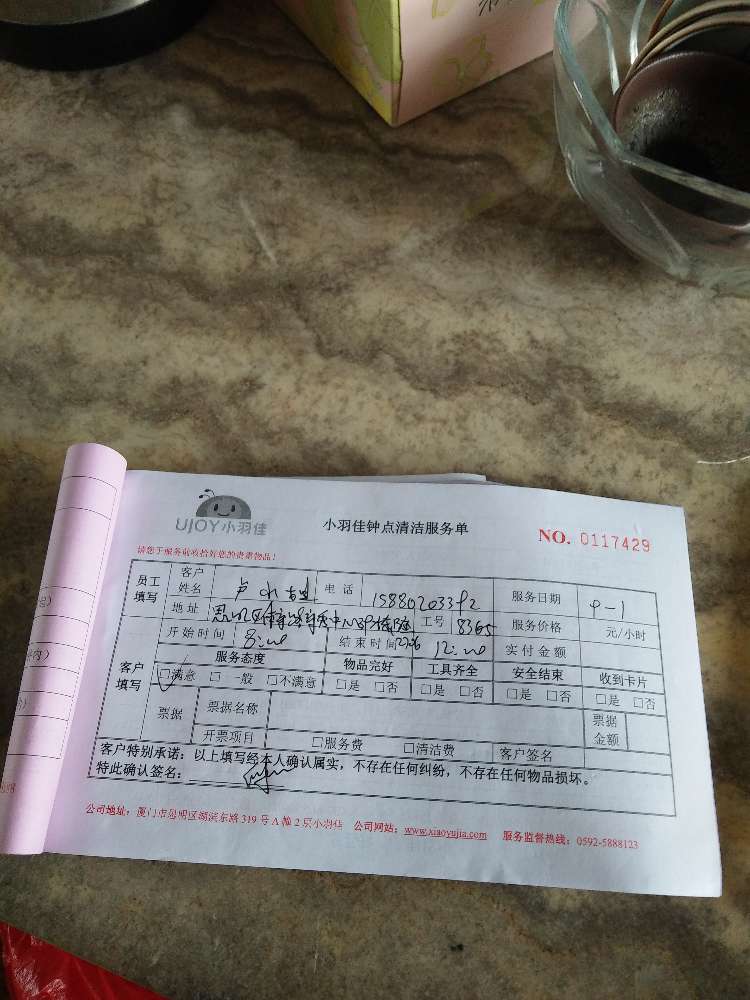 UJOY小羽佳
小羽佳钟点清洁服务单
NO. 0117429
请您于服务前收拾好您的贵重物品!
员工填写 客户姓名 卢 电话 服务日期 9-1
地址 工号 8365 服务价格 元/小时
开始时间 8:00 结束时间 12:00 实付金额
客户填写 服务态度 物品完好 工具齐全 安全结束 收到卡片
□满意 □一般 □不满意 □是 □否 □是 □否 □是 □否 □是 □否
票据 票据名称 票据金额
开票项目 □服务费 □清洁费 客户签名
客户特别承诺:以上填写经本人确认属实,不存在任何纠纷,不存在任何物品损坏。
特此确认签名:
公司地址:厦门市思明区湖滨东路319号A幢2层小羽佳 公司网站:www.xiaoyujia.com 服务监督热线:0592-5888123